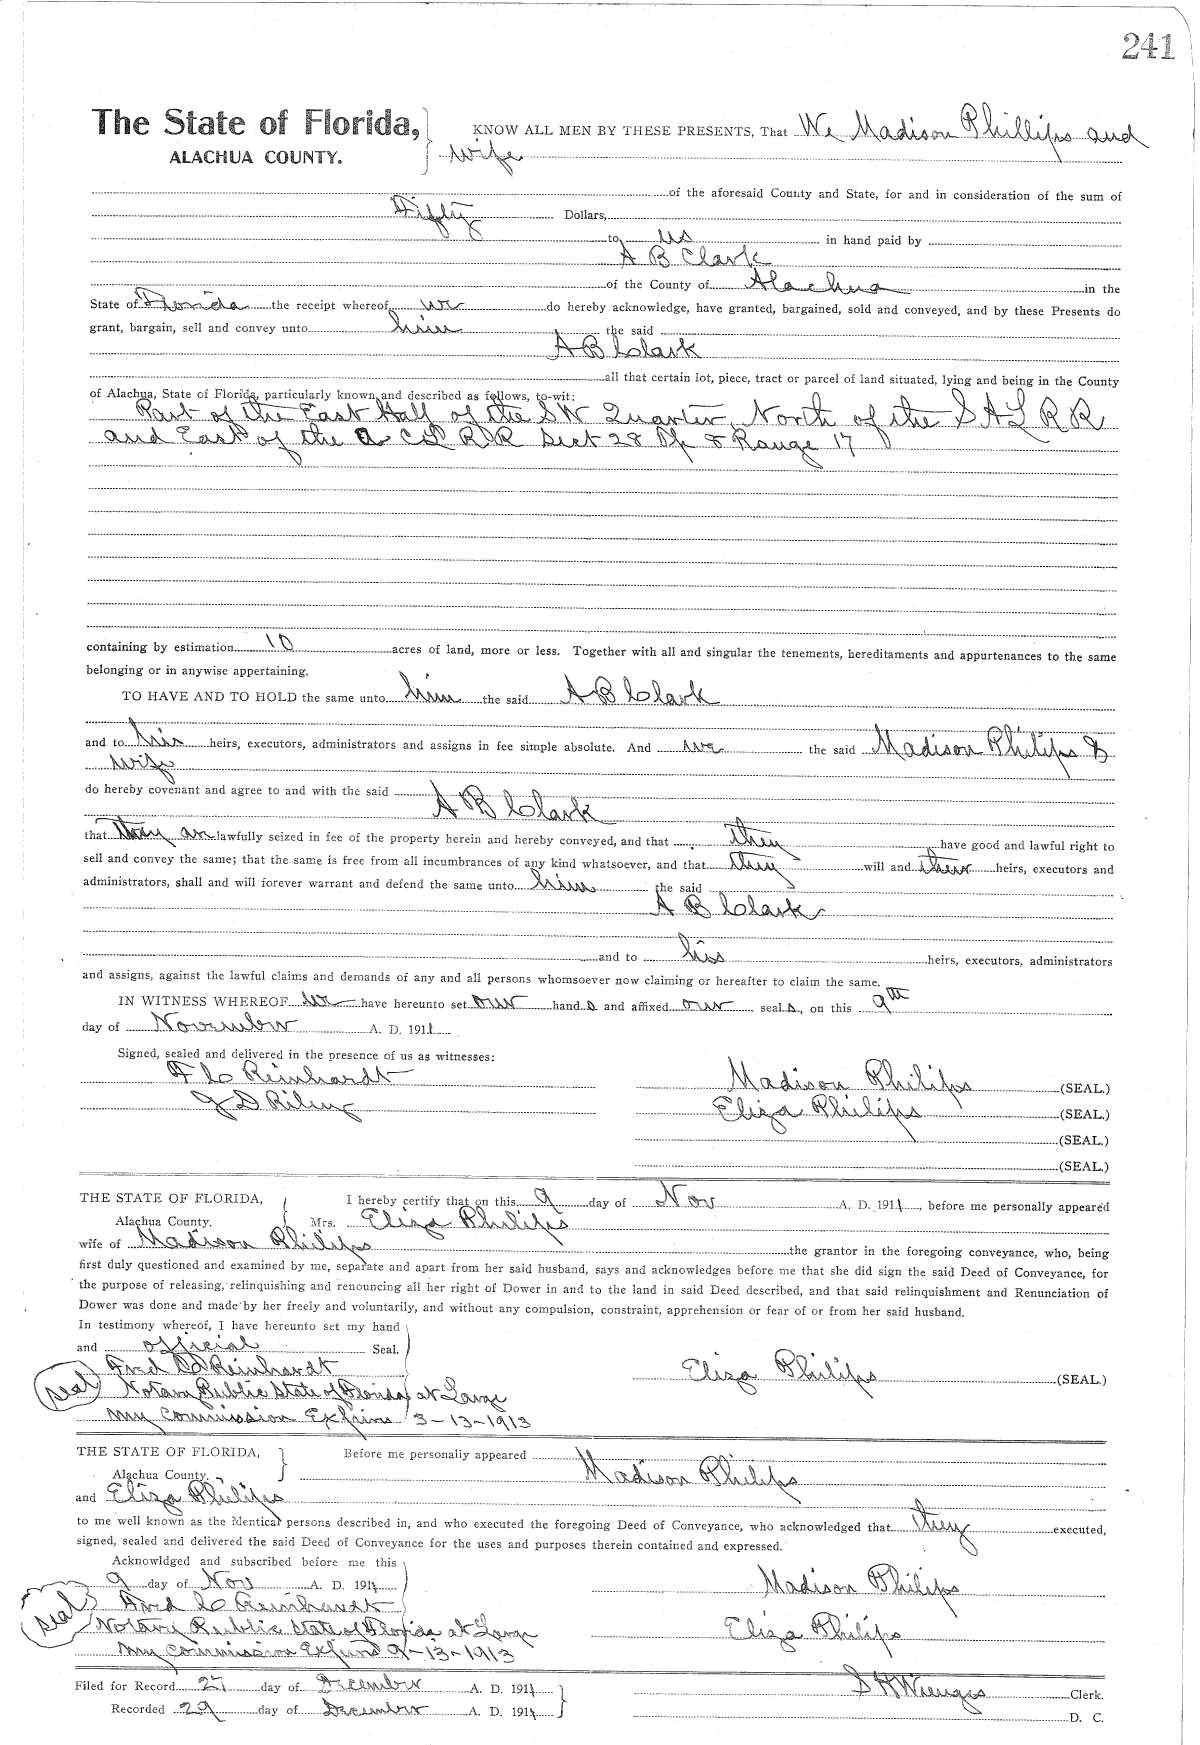 241
The State of Florida, KNOW ALL MEN BY THESE PRESENTS, That We Madison Phillips and
ALACHUA COUNTY. wife
of the aforesaid County and State, for and in consideration of the sum of
Fifty Dollars,
to us in hand paid by
A B Clark
of the County of Alachua in the
State of Florida the receipt whereof we do hereby acknowledge, have granted, bargained, sold and conveyed, and by these Presents do
grant, bargain, sell and convey unto him the said
A B Clark
all that certain lot, piece, tract or parcel of land situated, lying and being in the County
of Alachua, State of Florida, particularly known and described as follows, to-wit:
Part of the East Half of the SW Quarter North of the S A L R R
and East of the A C L R R Sect 28 Tp 8 Range 17
containing by estimation 10 acres of land, more or less. Together with all and singular the tenements, hereditaments and appurtenances to the same
belonging or in anywise appertaining.
TO HAVE AND TO HOLD the same unto him the said A B Clark
and to his heirs, executors, administrators and assigns in fee simple absolute. And we the said Madison Philips &
wife
do hereby covenant and agree to and with the said A B Clark
that they are lawfully seized in fee of the property herein and hereby conveyed, and that they have good and lawful right to
sell and convey the same; that the same is free from all incumbrances of any kind whatsoever, and that they will and their heirs, executors and
administrators, shall and will forever warrant and defend the same unto him the said
A B Clark
and to his heirs, executors, administrators
and assigns, against the lawful claims and demands of any and all persons whomsoever now claiming or hereafter to claim the same.
IN WITNESS WHEREOF we have hereunto set our hand s and affixed our seal s, on this 9th
day of November A. D. 1911
Signed, sealed and delivered in the presence of us as witnesses:
F C Reinhardt Madison Philips (SEAL.)
J D Riley Eliza Philips (SEAL.)
(SEAL.)
(SEAL.)
THE STATE OF FLORIDA, I hereby certify that on this 9 day of Nov A. D. 1911, before me personally appeared
Alachua County. Mrs. Eliza Philips
wife of Madison Philips the grantor in the foregoing conveyance, who, being
first duly questioned and examined by me, separate and apart from her said husband, says and acknowledges before me that she did sign the said Deed of Conveyance, for
the purpose of releasing, relinquishing and renouncing all her right of Dower in and to the land in said Deed described, and that said relinquishment and Renunciation of
Dower was done and made by her freely and voluntarily, and without any compulsion, constraint, apprehension or fear of or from her said husband.
In testimony whereof, I have hereunto set my hand
and official Seal.
Fred C Reinhardt Eliza Philips (SEAL.)
seal Notary Public State of Florida at Large
My Commission Expires 3-13-1913
THE STATE OF FLORIDA, Before me personally appeared
Alachua County. Madison Philips
and Eliza Philips
to me well known as the identical persons described in, and who executed the foregoing Deed of Conveyance, who acknowledged that they executed,
signed, sealed and delivered the said Deed of Conveyance for the uses and purposes therein contained and expressed.
Acknowldged and subscribed before me this
9 day of Nov A. D. 1911 Madison Philips
seal Fred C Reinhardt
Notary Public State of Florida at Large Eliza Philips
My Commission Expires 9-13-1913
Filed for Record 27 day of December A. D. 1911 S H Wienges Clerk.
Recorded 29 day of December A. D. 1911 D. C.